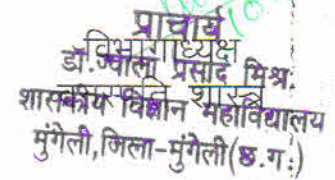 प्राचार्य
विभागाध्यक्ष
डॉ. ज्वाला प्रसाद मिश्र
वनस्पति शास्त्र
शासकीय विज्ञान महाविद्यालय
मुंगेली, जिला-मुंगेली (छ.ग.)